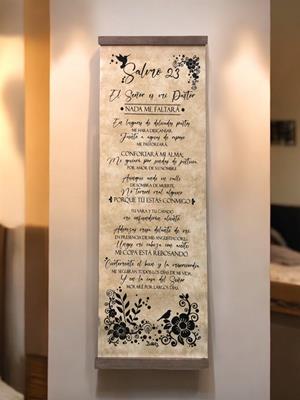 Salmo 23
El Señor es mi Pastor
NADA ME FALTARÁ
En lugares de delicados pastos
ME HARÁ DESCANSAR
Junto a aguas de reposo
ME PASTOREARÁ
CONFORTARÁ MI ALMA;
Me guiará por sendas de justicia
POR AMOR DE SU NOMBRE
Aunque ande en valle
DE SOMBRA DE MUERTE,
No temeré mal alguno
PORQUE TÚ ESTÁS CONMIGO
TU VARA Y TU CAYADO
me infundirán aliento
Aderezas mesa delante de mí
EN PRESENCIA DE MIS ANGUSTIADORES;
Unges mi cabeza con aceite
MI COPA ESTÁ REBOSANDO
Ciertamente el bien y la misericordia
ME SEGUIRÁN TODOS LOS DÍAS DE MI VIDA,
Y en la casa del Señor
MORARÉ POR LARGOS DÍAS